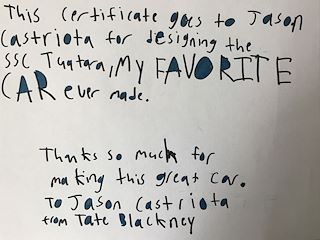 This certificate goes to Jason
Castriota for designing the
SSC Tuatara, MY FAVORITE
CAR ever made.
Thanks so much for
making this great car.
To Jason Castriota
from Tate Blackney